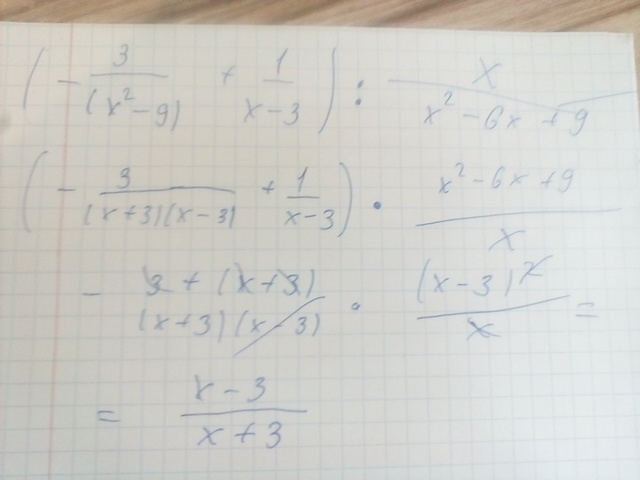 ( - 3/(x² - 9) + 1/(x - 3) ) : x/(x² - 6x + 9)
( - 3/((x+3)(x-3)) + 1/(x-3) ) · (x² - 6x + 9)/x
- (3 + (x+3))/((x+3)(x-3)) · (x-3)²/x =
= (x - 3)/(x + 3)